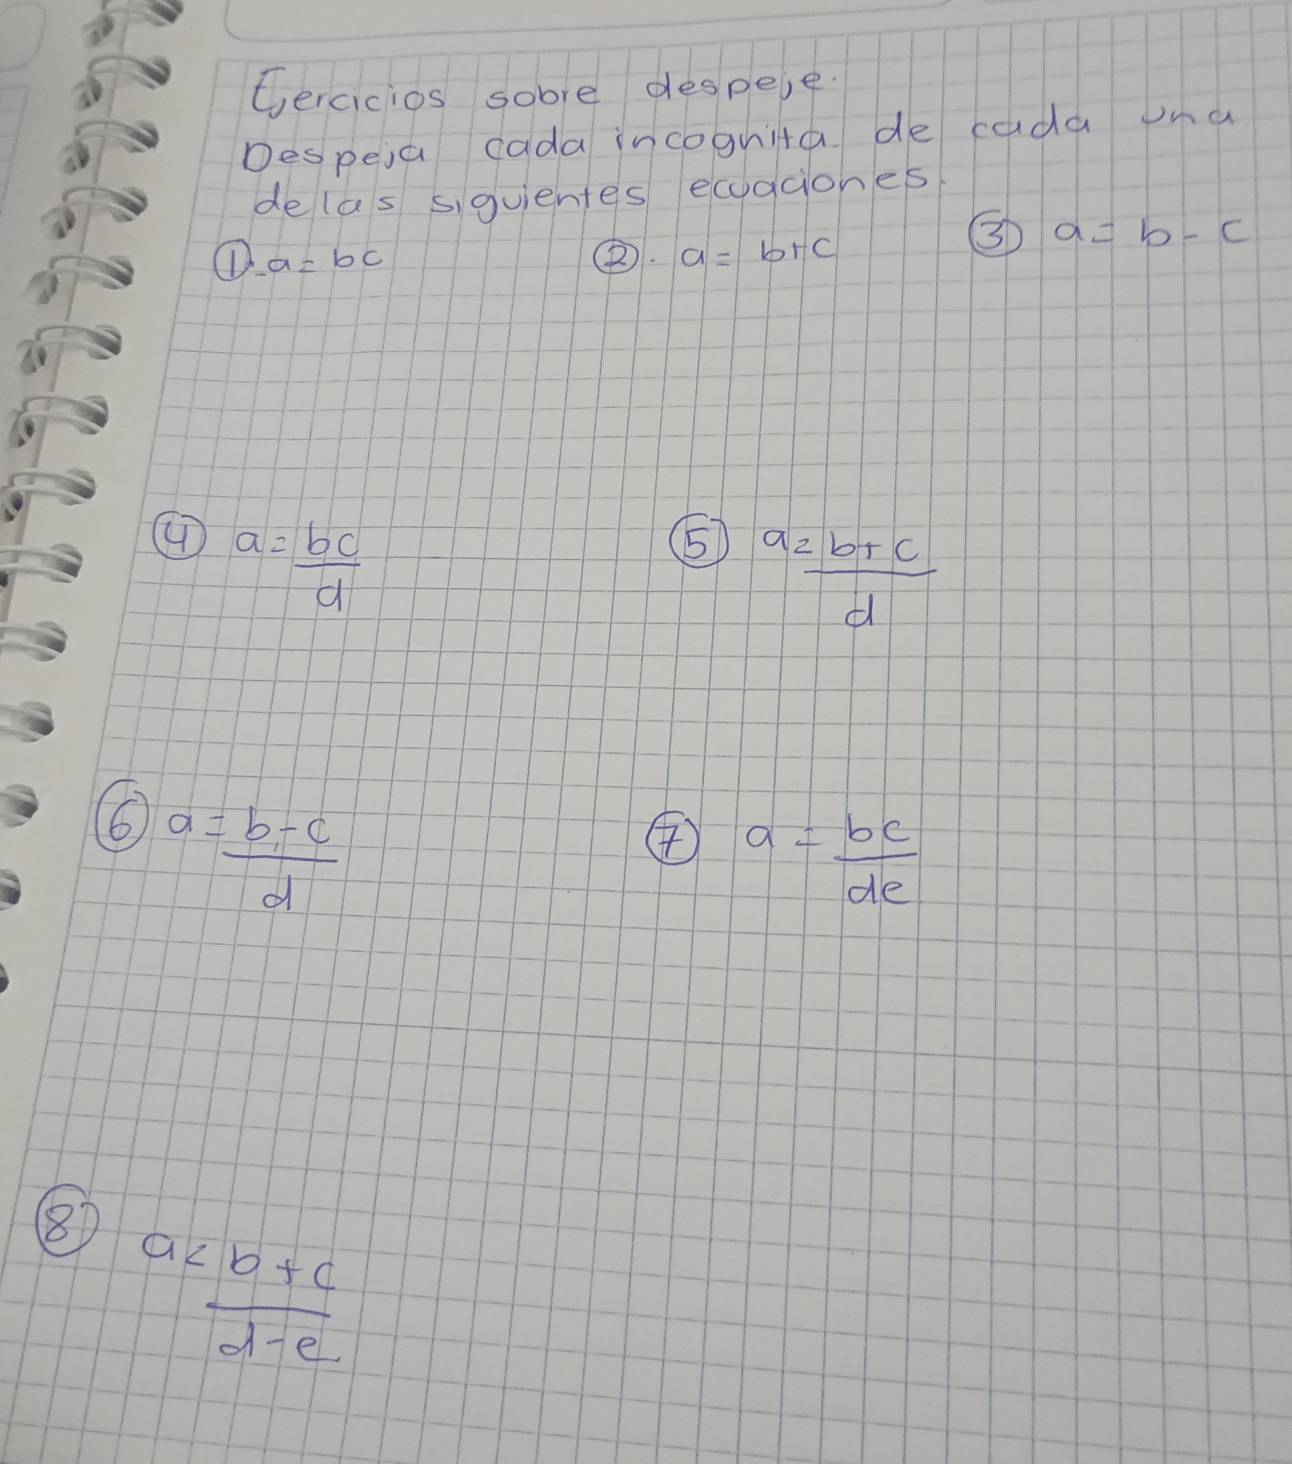 Ejercicios sobre despeje.
Despeja cada incognita de cada una
de las siguientes ecuaciones.
① a = bc ② . a = b+c ③ a = b - c
④ a = bc/d ⑤ a = b + c/d
⑥ a = b - c/d ⑦ a = bc/de
⑧ a < b + c/d - e